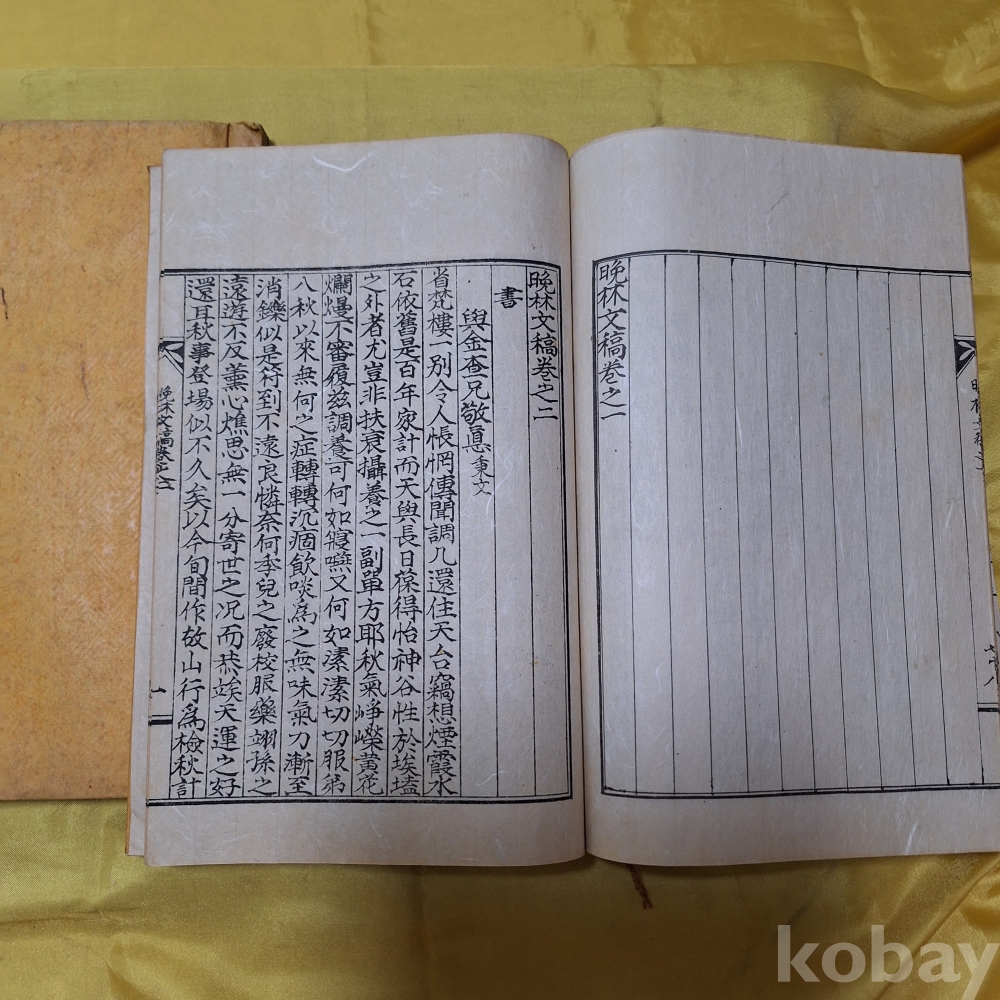 晚林文稿卷之一
晚林文稿卷之二
書
與金查兄敬㥁秉文
省梵樓一別令人悵惘傳聞調几還住天台竊想煙霞水
石依舊是百年家計而天與長日葆得怡神谷性於埃壒
之外者尤豈非扶衰攝養之一副單方耶秋氣崢嶸黃花
爛熳不審履玆調養可何如寢嚥又何如溸溸切切服弟
八秋以來無何之症轉轉沉痼飮啖爲之無味氣力漸至
消鑠似是符到不遠良憐奈何季兒之廢校服藥翊孫之
遠遊不反薰心燋思無一分寄世之况而恭竢天運之好
還耳秋事登場似不久矣以今旬間作故山行爲檢秋計
晚林文稿卷之二
一
kobay